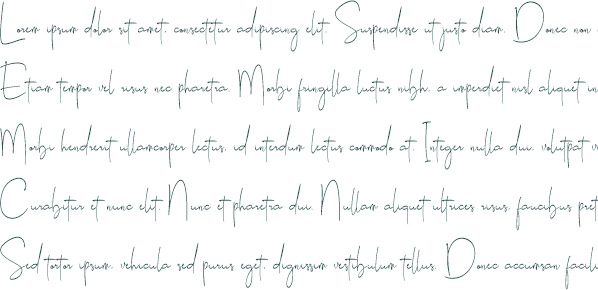 Lorem ipsum dolor sit amet, consectetur adipiscing elit. Suspendisse ut justo diam. Donec non
Etiam tempor vel risus nec pharetra. Morbi fringilla luctus nibh, a imperdiet nisl aliquet in
Morbi hendrerit ullamcorper lectus, id interdum lectus commodo at. Integer nulla dui, volutpat v
Curabitur et nunc elit. Nunc et pharetra dui. Nullam aliquet ultrices risus, faucibus pret
Sed tortor ipsum, vehicula sed purus eget, dignissim vestibulum tellus. Donec accumsan facili